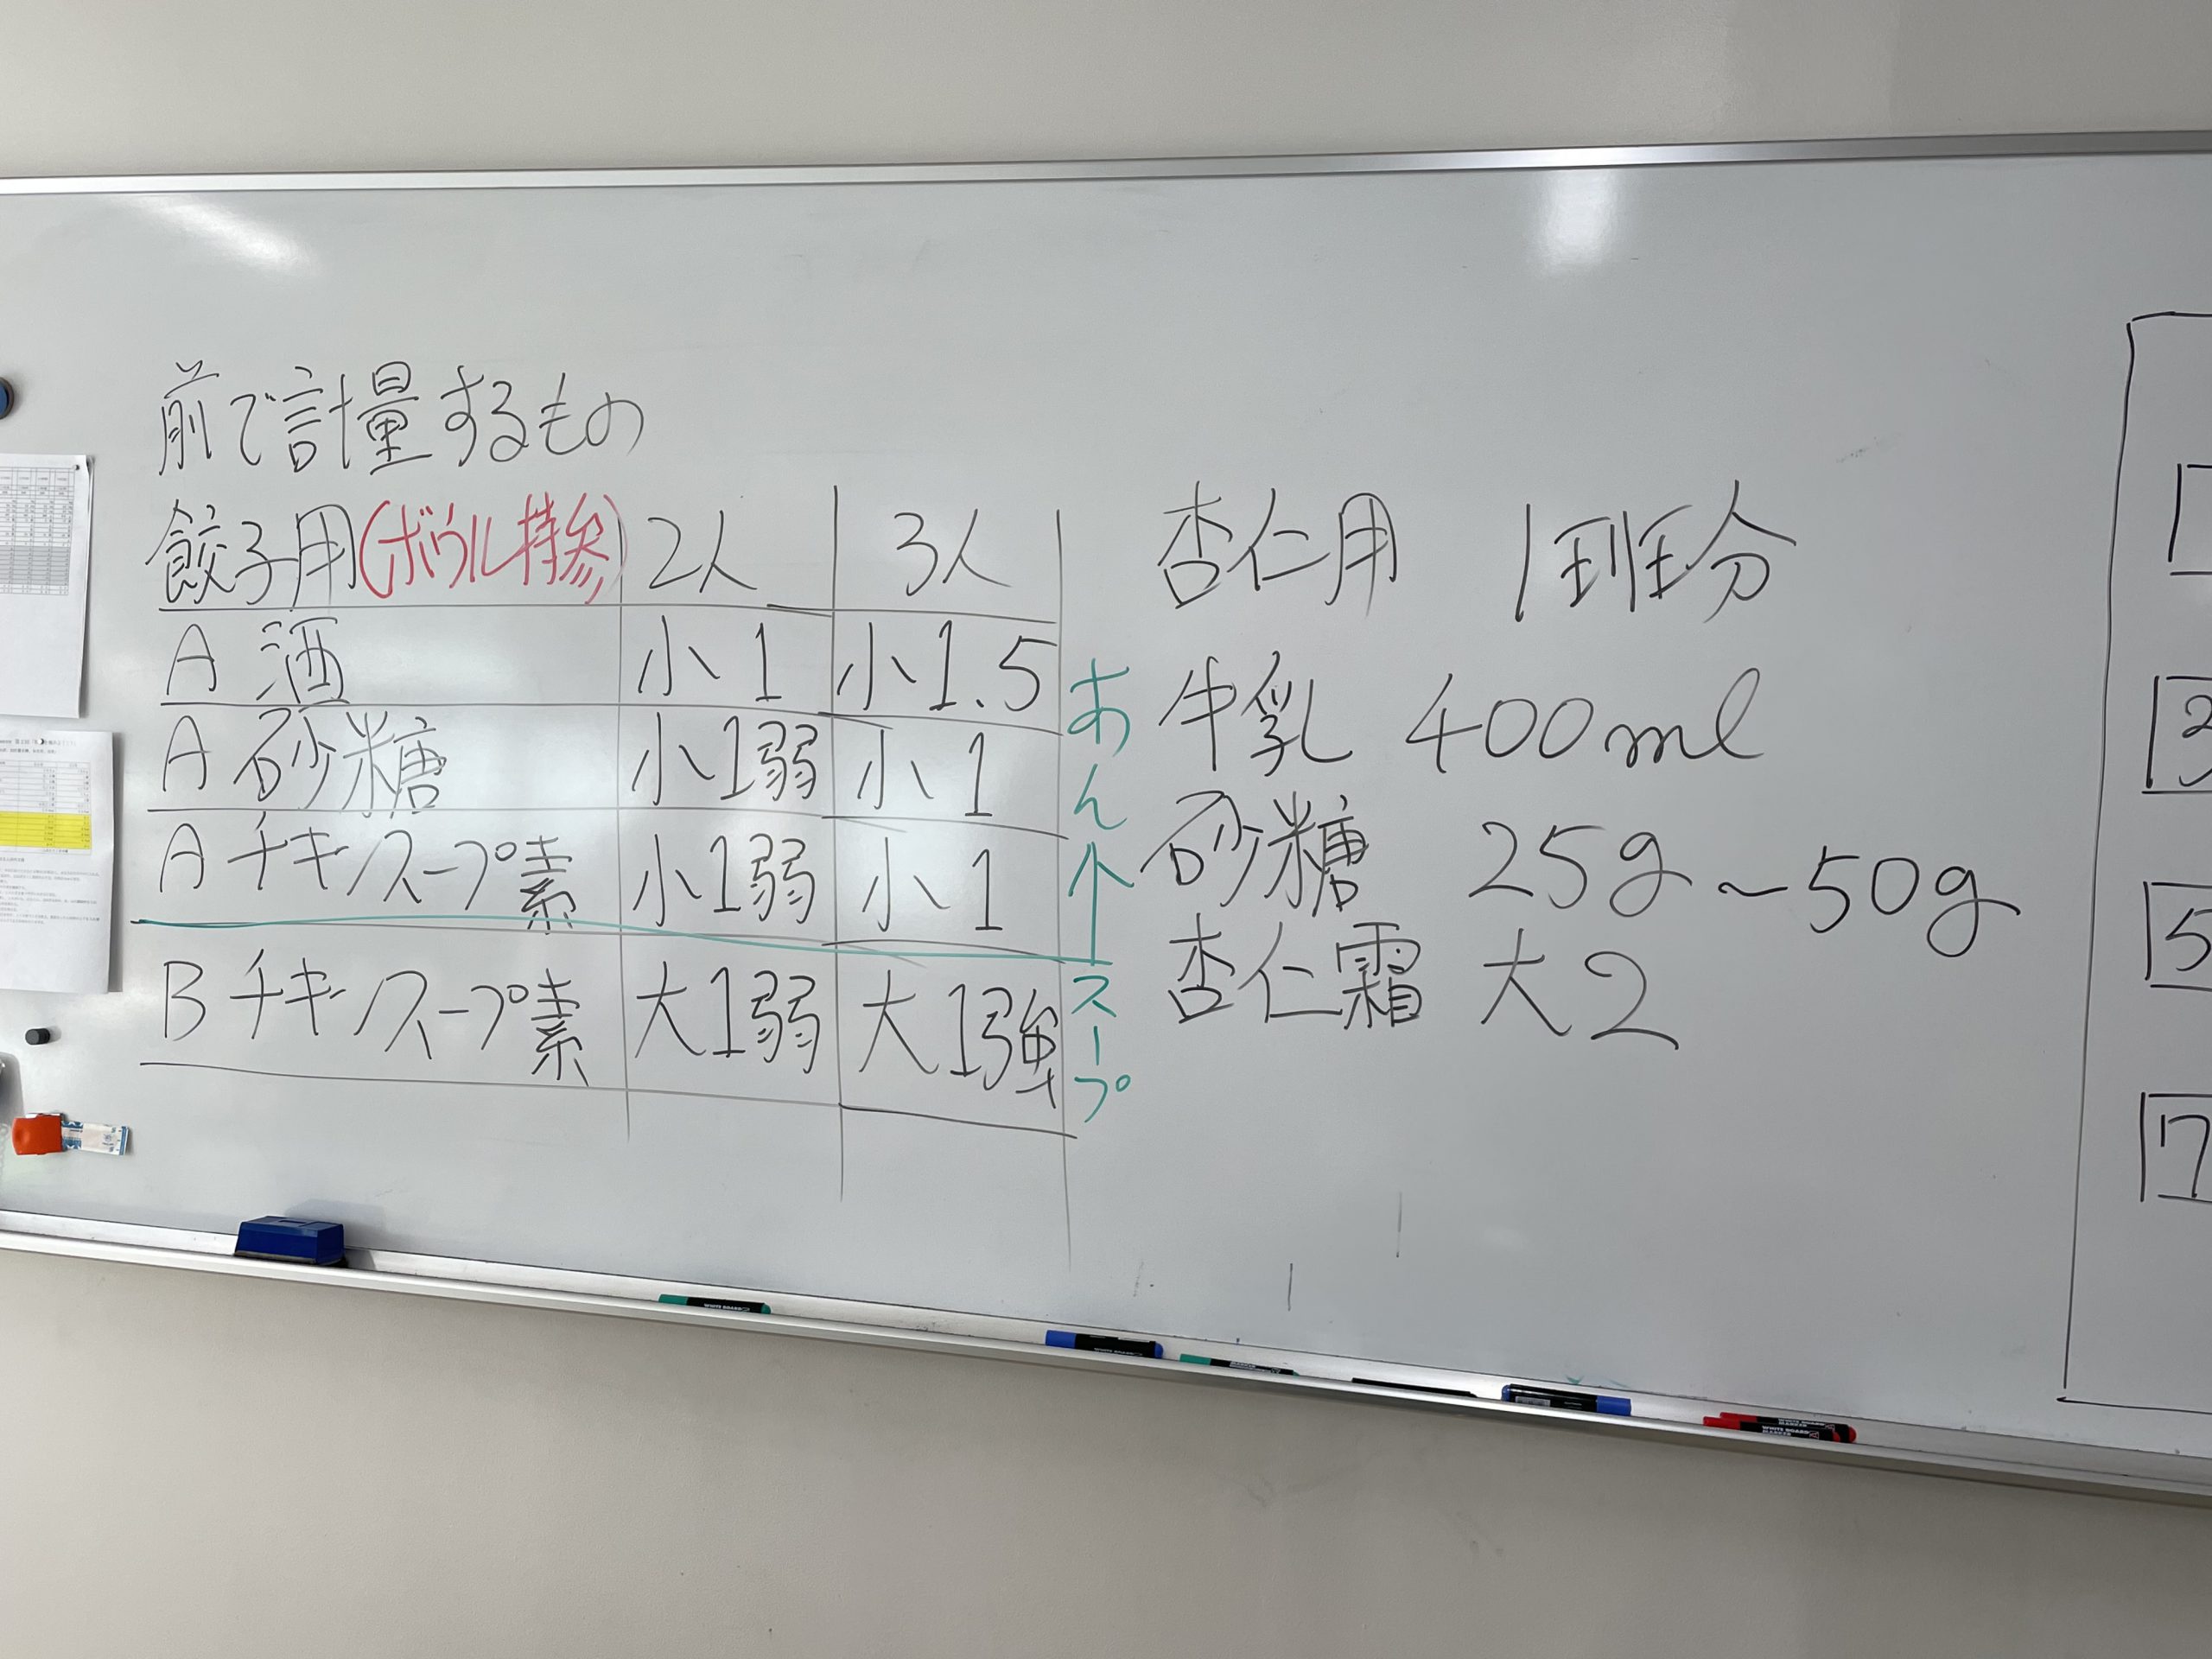 前で計量するもの
餃子用(ボウル持参) 2人 3人
A 酒 小1 小1.5
A 砂糖 小1弱 小1
A チキンスープ素 小1弱 小1
B チキンスープ素 大1弱 大1強
あん↑
スープ
杏仁用 1班分
牛乳 400ml
砂糖 25g~50g
杏仁霜 大2
3
5
7